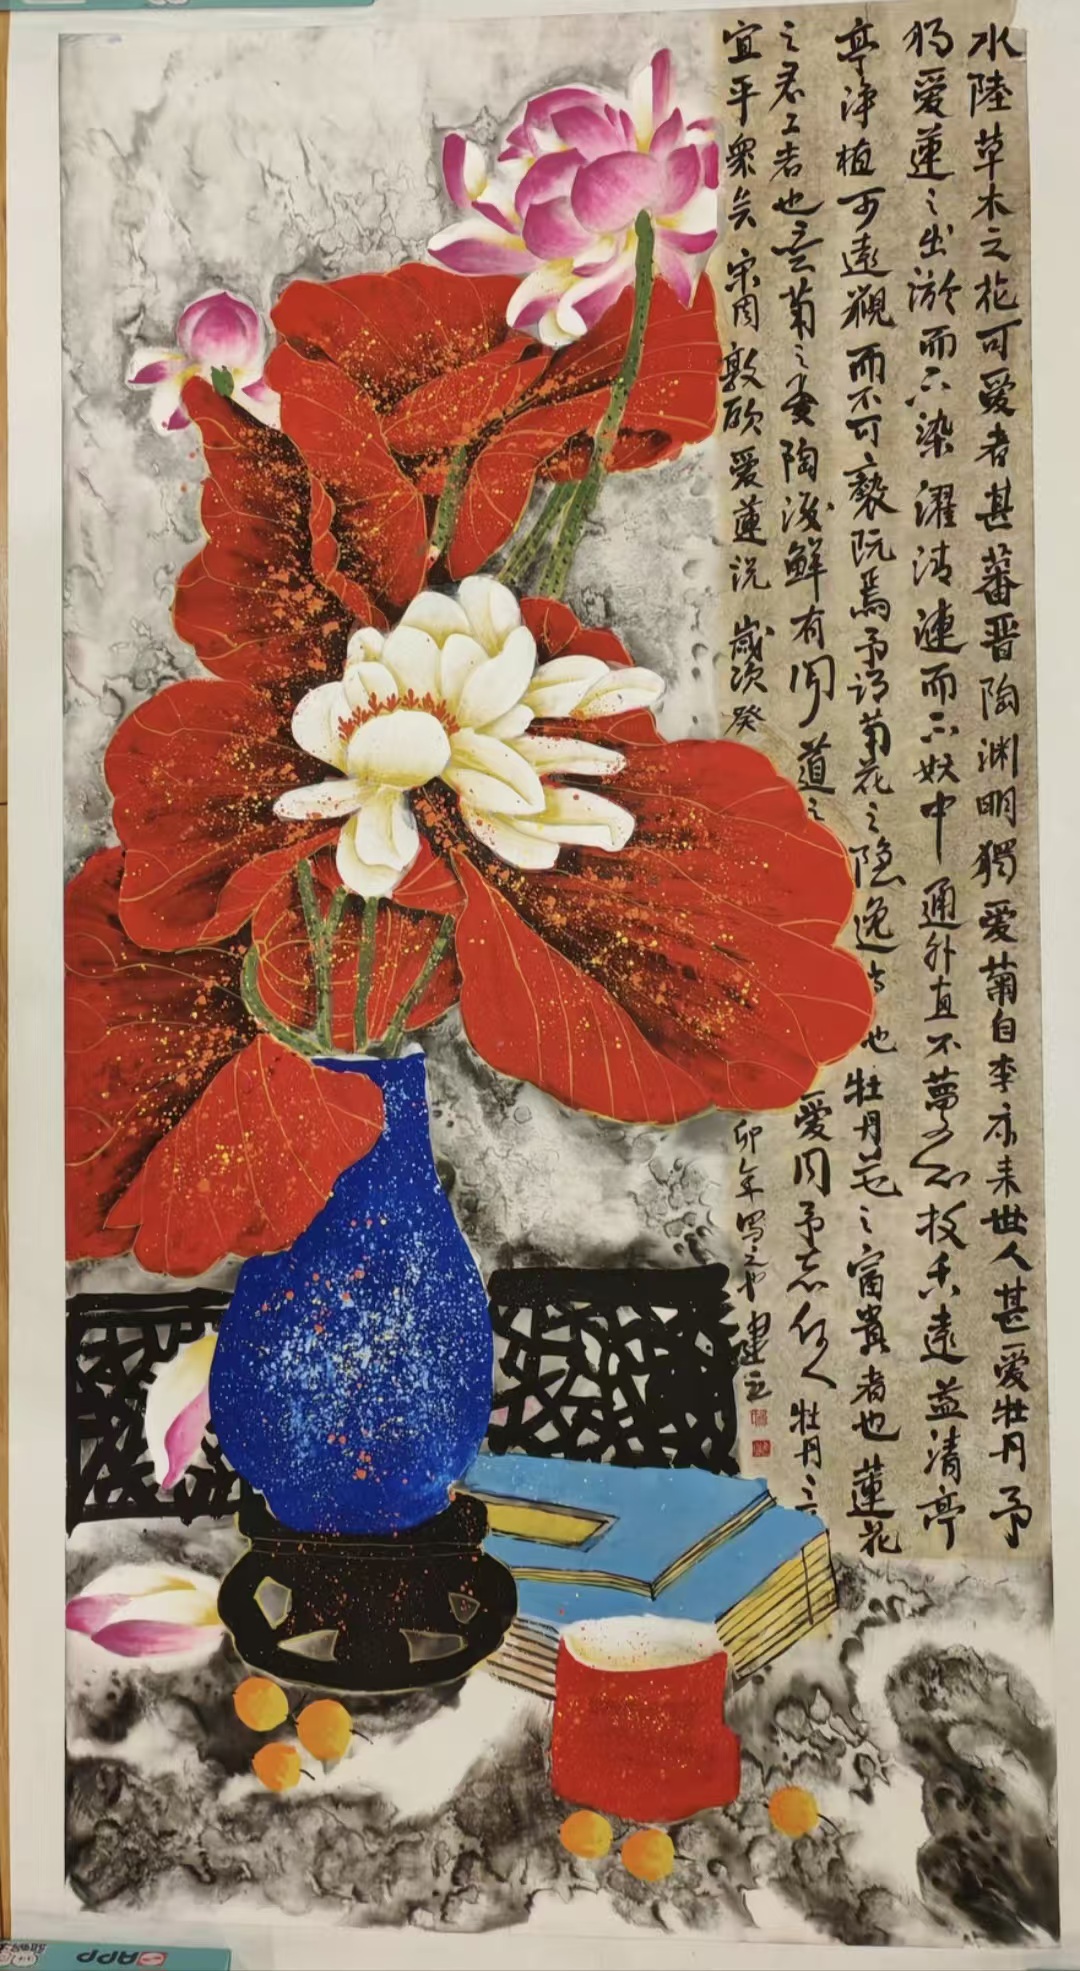 水陸草木之花可爱者甚蕃晋陶渊明獨爱菊自李唐来世人甚爱牡丹予
獨爱蓮之出淤而不染濯清漣而不妖中通外直不蔓不枝香远益清亭
亭浄植可遠觀而不可褻玩焉予谓菊花之隐逸者也牡丹花之富貴者也蓮花
之君子者也噫菊之爱陶後鮮有闻道之爱同予者何人牡丹之
宜乎衆矣宋周敦颐爱蓮说歲次癸卯年写之也建
APP